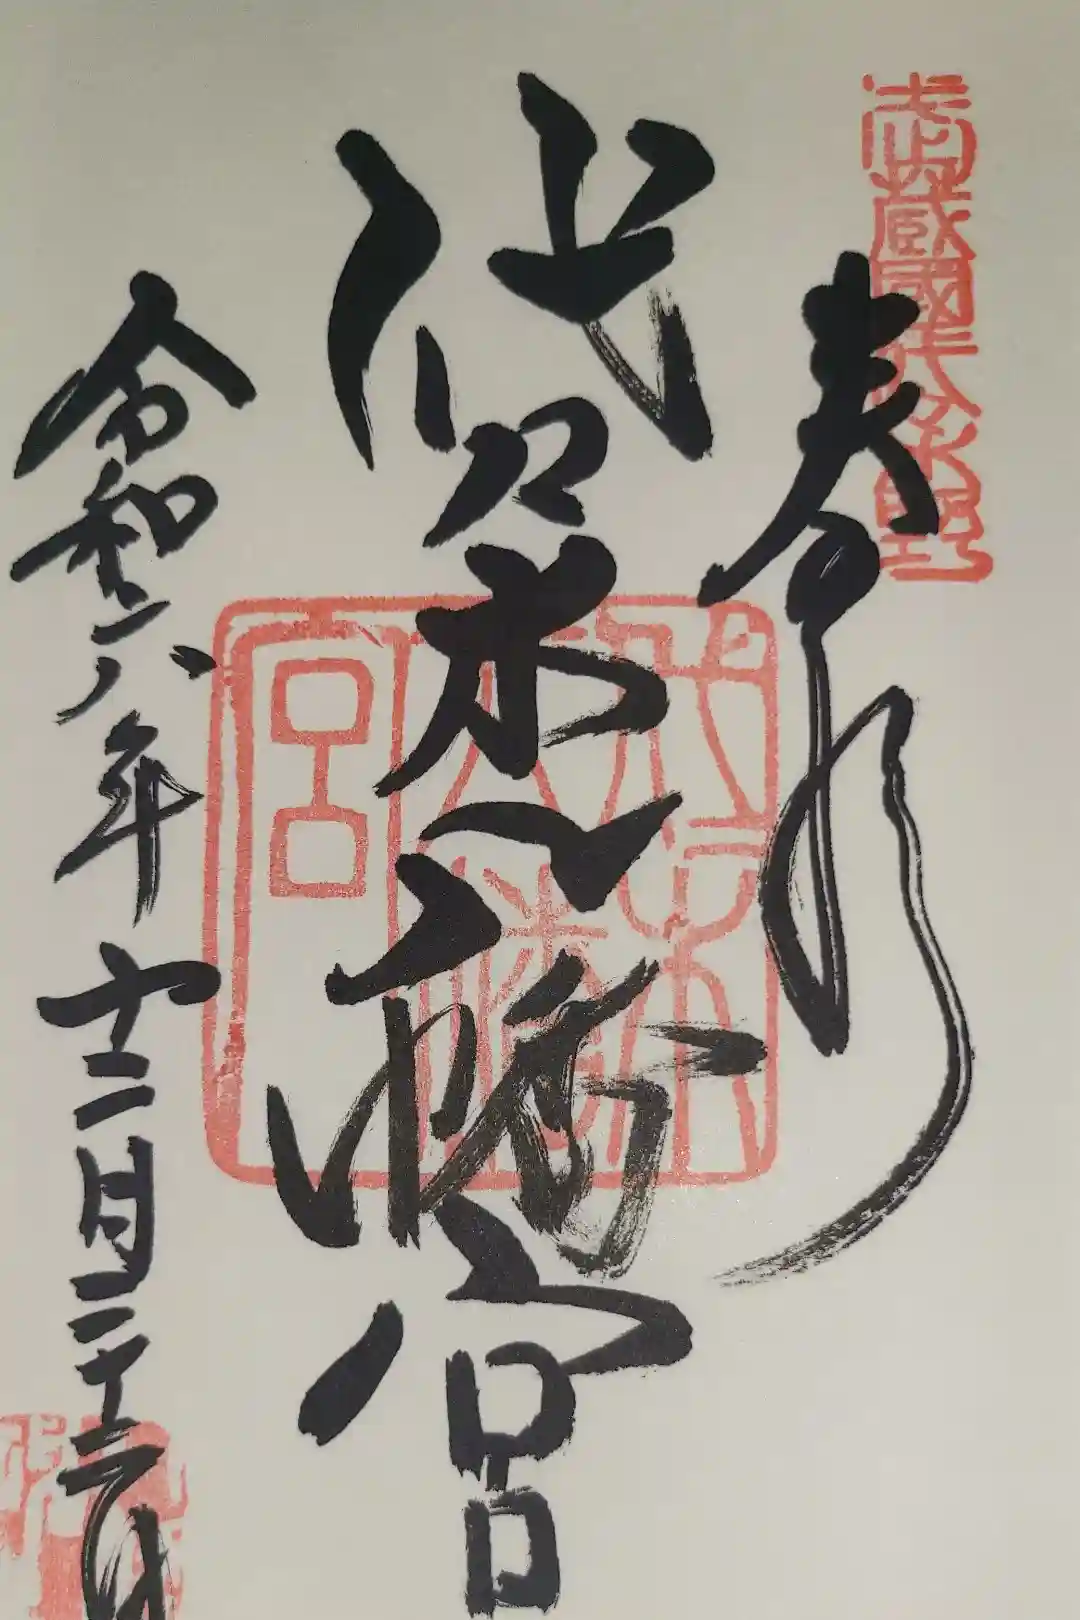 武蔵國代々木野
奉拝
代々木八幡宮
代々木八幡宮
令和六年十二月二十三日